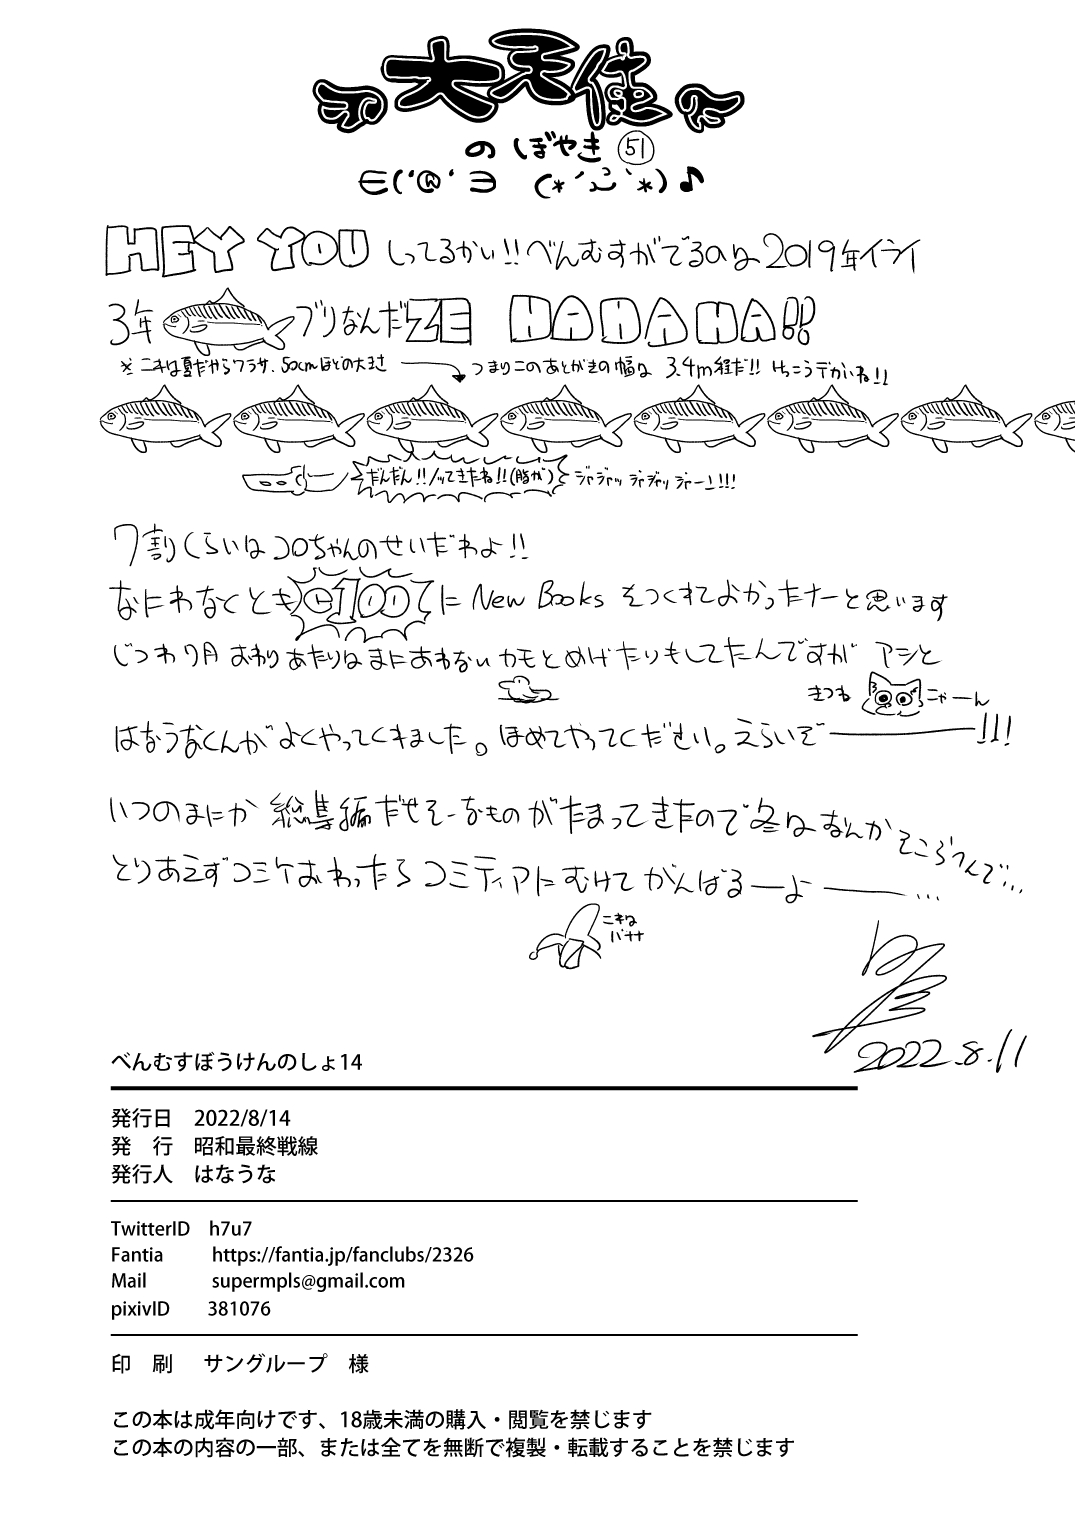 大天使
の ぼやき 51
∈('@'∋ (*´ω`*)♪
HEY YOU しってるかい!!べんむすがでるのは2019年イライ
3年 ブリなんだZE HAHAHA!!
※これは夏だからワラサ、50cmほどの大きさ つまりこのあとがきの幅は 3.4m程だ!! けっこうデかいね!!
だんだん!!ノッてきたね!!(脂が) ジャジャッ ジャジャッ ジャーン!!!
7割くらいはコロちゃんのせいだわよ!!
なにわなくとも に New Books をつくれてよかったナーと思います
じつわ7月おわりあたりはまにあわないカモとめげたりもしてたんですが アシと
きつね ニャーん
はなうなくんがよくやってくれました。ほめてやってください。えらいぞ――!!!
いつのまにか 総集編だせそーなものがたまってきたので冬はなんか
とりあえずコミケおわったらコミティアにむけてがんばるーよ――…
これは
バナナ
2022.8.11
べんむすぼうけんのしょ14
発行日 2022/8/14
発 行 昭和最終戦線
発行人 はなうな
TwitterID h7u7
Fantia https://fantia.jp/fanclubs/2326
Mail supermpls@gmail.com
pixivID 381076
印 刷 サングループ 様
この本は成年向けです、18歳未満の購入・閲覧を禁じます
この本の内容の一部、または全てを無断で複製・転載することを禁じます